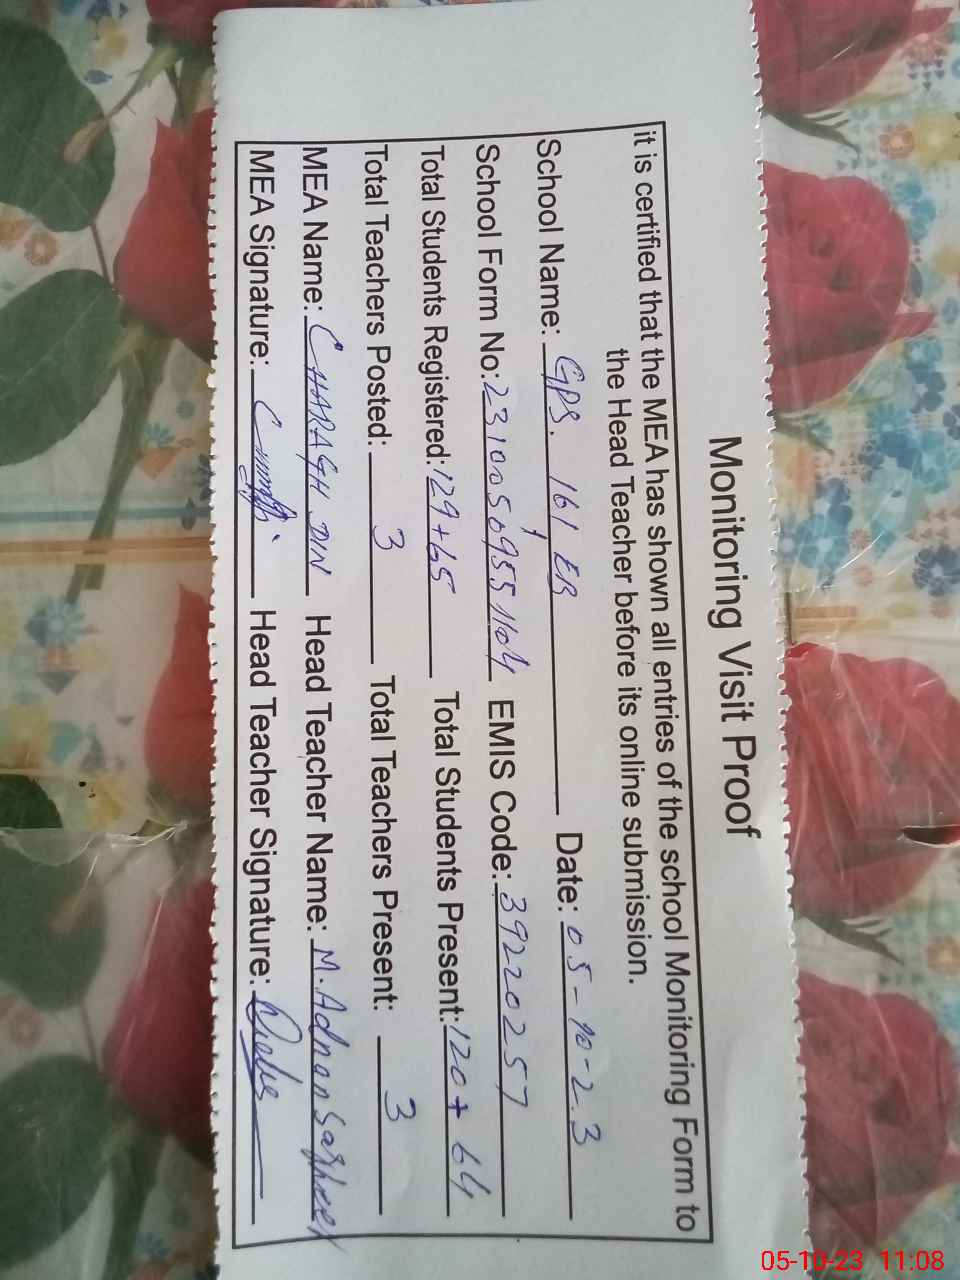 Monitoring Visit Proof
it is certified that the MEA has shown all entries of the school Monitoring Form to
the Head Teacher before its online submission.
School Name: GPS. 161 EB Date: 05-10-23
School Form No: 23100509551104 EMIS Code: 39220257
Total Students Registered: 129+65 Total Students Present: 120+64
Total Teachers Posted: 3 Total Teachers Present: 3
MEA Name: CHARAGH DIN Head Teacher Name: M. Adnan Sagheer
MEA Signature: Head Teacher Signature:
05-10-23 11:08